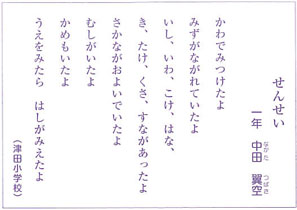 せんせい
一年　中田　翼空
なかた　つばさ
かわでみつけたよ
みずがながれていたよ
いし、いわ、こけ、はな、
き、たけ、くさ、すながあったよ
さかながおよいでいたよ
むしがいたよ
かめもいたよ
うえをみたら　はしがみえたよ
（津田小学校）